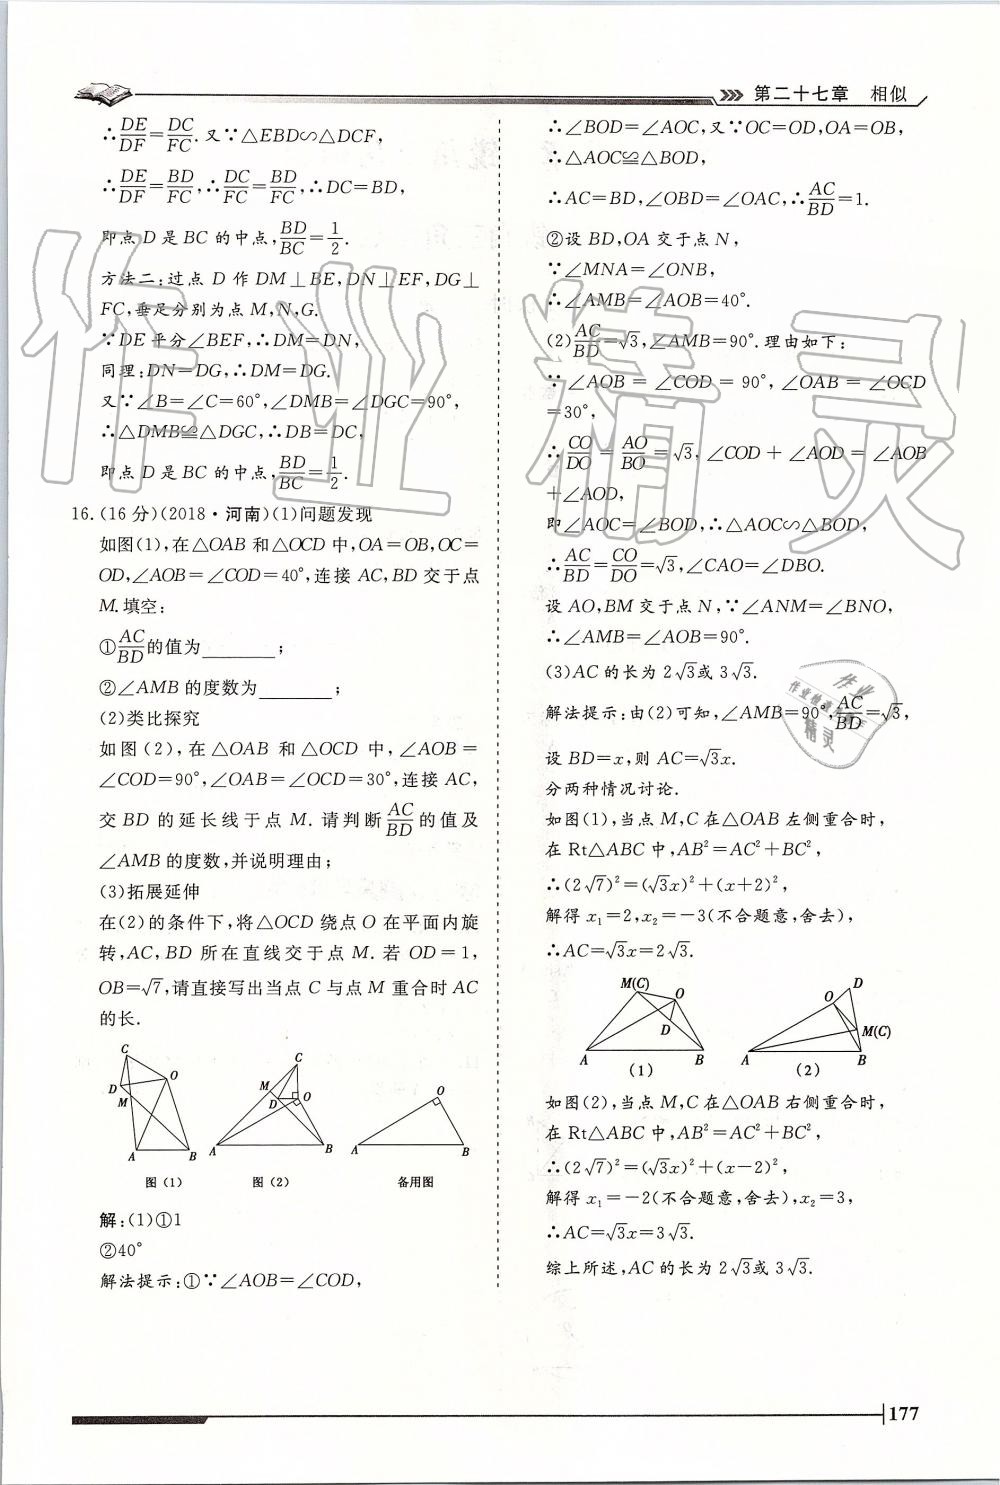 第二十七章 相似
∴DE/DF=DC/FC.又∵△EBD∽△DCF,
∴DE/DF=BD/FC,∴DC/FC=BD/FC,∴DC=BD,
即点 D 是 BC 的中点,BD/BC=1/2.
方法二:过点 D 作 DM⊥BE,DN⊥EF,DG⊥
FC,垂足分别为点 M,N,G.
∵DE 平分∠BEF,∴DM=DN,
同理:DN=DG,∴DM=DG.
又∵∠B=∠C=60°,∠DMB=∠DGC=90°,
∴△DMB≌△DGC,∴DB=DC,
即点 D 是 BC 的中点,BD/BC=1/2.
16.(16分)(2018·河南)(1)问题发现
如图(1),在△OAB 和△OCD 中,OA=OB,OC=
OD,∠AOB=∠COD=40°,连接 AC,BD 交于点
M.填空:
①AC/BD的值为________;
②∠AMB 的度数为________;
(2)类比探究
如图(2),在△OAB 和△OCD 中,∠AOB=
∠COD=90°,∠OAB=∠OCD=30°,连接 AC,
交 BD 的延长线于点 M.请判断AC/BD的值及
∠AMB 的度数,并说明理由;
(3)拓展延伸
在(2)的条件下,将△OCD 绕点 O 在平面内旋
转,AC,BD 所在直线交于点 M.若 OD=1,
OB=√7,请直接写出当点 C 与点 M 重合时 AC
的长.
C D O M A B
图(1)
C M D O A B
图(2)
O A B
备用图
解:(1)①1
②40°
解法提示:①∵∠AOB=∠COD,
∴∠BOD=∠AOC,又∵OC=OD,OA=OB,
∴△AOC≌△BOD,
∴AC=BD,∠OBD=∠OAC,∴AC/BD=1.
②设 BD,OA 交于点 N,
∵∠MNA=∠ONB,
∴∠AMB=∠AOB=40°.
(2)AC/BD=√3,∠AMB=90°.理由如下:
∵∠AOB=∠COD=90°,∠OAB=∠OCD
=30°,
∴CO/DO=AO/BO=√3,∠COD+∠AOD=∠AOB
+∠AOD,
即∠AOC=∠BOD,∴△AOC∽△BOD,
∴AC/BD=CO/DO=√3,∠CAO=∠DBO.
设 AO,BM 交于点 N,∵∠ANM=∠BNO,
∴∠AMB=∠AOB=90°.
(3)AC 的长为 2√3或 3√3.
解法提示:由(2)可知,∠AMB=90°,AC/BD=√3,
设 BD=x,则 AC=√3x.
分两种情况讨论.
如图(1),当点 M,C 在△OAB 左侧重合时,
在 Rt△ABC 中,AB²=AC²+BC²,
∴(2√7)²=(√3x)²+(x+2)²,
解得 x₁=2,x₂=−3(不合题意,舍去),
∴AC=√3x=2√3.
M(C) O D A B
(1)
D O M(C) A B
(2)
如图(2),当点 M,C 在△OAB 右侧重合时,
在 Rt△ABC 中,AB²=AC²+BC²,
∴(2√7)²=(√3x)²+(x−2)²,
解得 x₁=−2(不合题意,舍去),x₂=3,
∴AC=√3x=3√3.
综上所述,AC 的长为 2√3或 3√3.
177
作业精灵
作业
精灵